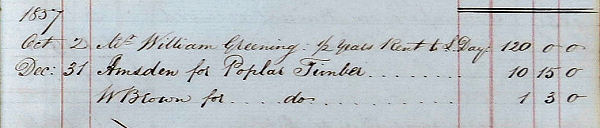 1857
Oct 2 Mr William Greening: ½ Years Rent to L. Day: 120 0 0
Dec: 31 Amsden for Poplar Timber ........ 10 15 0
W Brown for .... do ........ 1 3 0